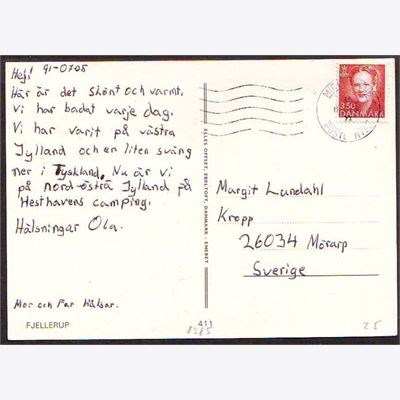 Hej! 91-0708
Här är det skönt och varmt.
Vi har badat varje dag.
Vi har varit på västra
Jylland och en liten sväng
ner i Tyskland. Nu är vi
på nord-östra Jylland på
Hesthavens camping.
Hälsningar Ola.
Mor och Far Hälsar.
FJELLERUP
ELLES OFFSET, EBELTOFT, DANMARK - ENERET
411
8585
3.50
DANMARK
Margit Lundahl
Kropp
26034 Mörarp
Sverige
25